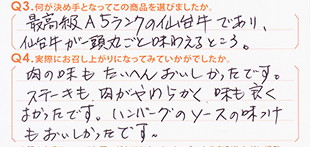 Q3.何が決め手となってこの商品を選びましたか。
最高級A5ランクの仙台牛であり、
仙台牛が一頭丸ごと味わえるところ。
Q4.実際にお召し上がりになってみていかがでしたか。
肉の味も たいへんおいしかったです。
ステーキも 肉がやわらかく、味も良く
よかったです。ハンバーグのソースの味つけ
もおいしかったです。